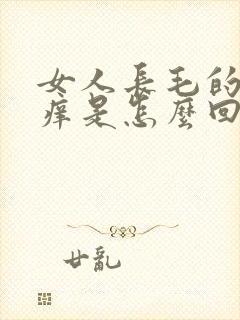 女人長毛的
癢是怎麼回
廿亂